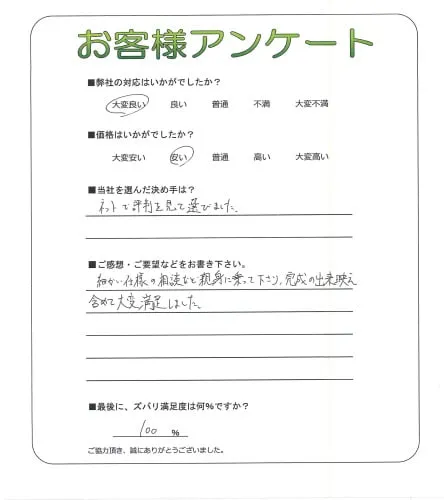 お客様アンケート
■弊社の対応はいかがでしたか？
大変良い 良い 普通 不満 大変不満
■価格はいかがでしたか？
大変安い 安い 普通 高い 大変高い
■当社を選んだ決め手は？
ネットで評判を見て選びました。
■ご感想・ご要望などをお書き下さい。
細かい仕様の相談など親身に乗って下さり、完成の出来映え
含めて大変満足しました。
■最後に、ズバリ満足度は何%ですか？
100 %
ご協力頂き、誠にありがとうございました。